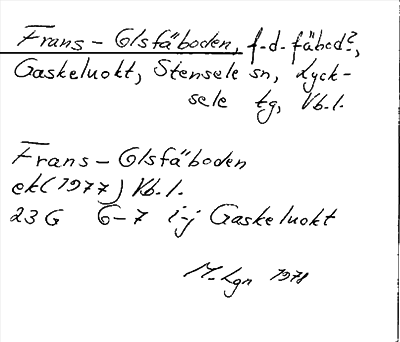 Frans-Olsfäboden, f.d. fäbod?,
Gaskeluokt, Stensele sn, Lyck-
sele tg, Vb.l.
Frans-Olsfäboden
ek (1977) Vb.l.
23G 6-7 i-j Gaskeluokt
M-Lgn 1978